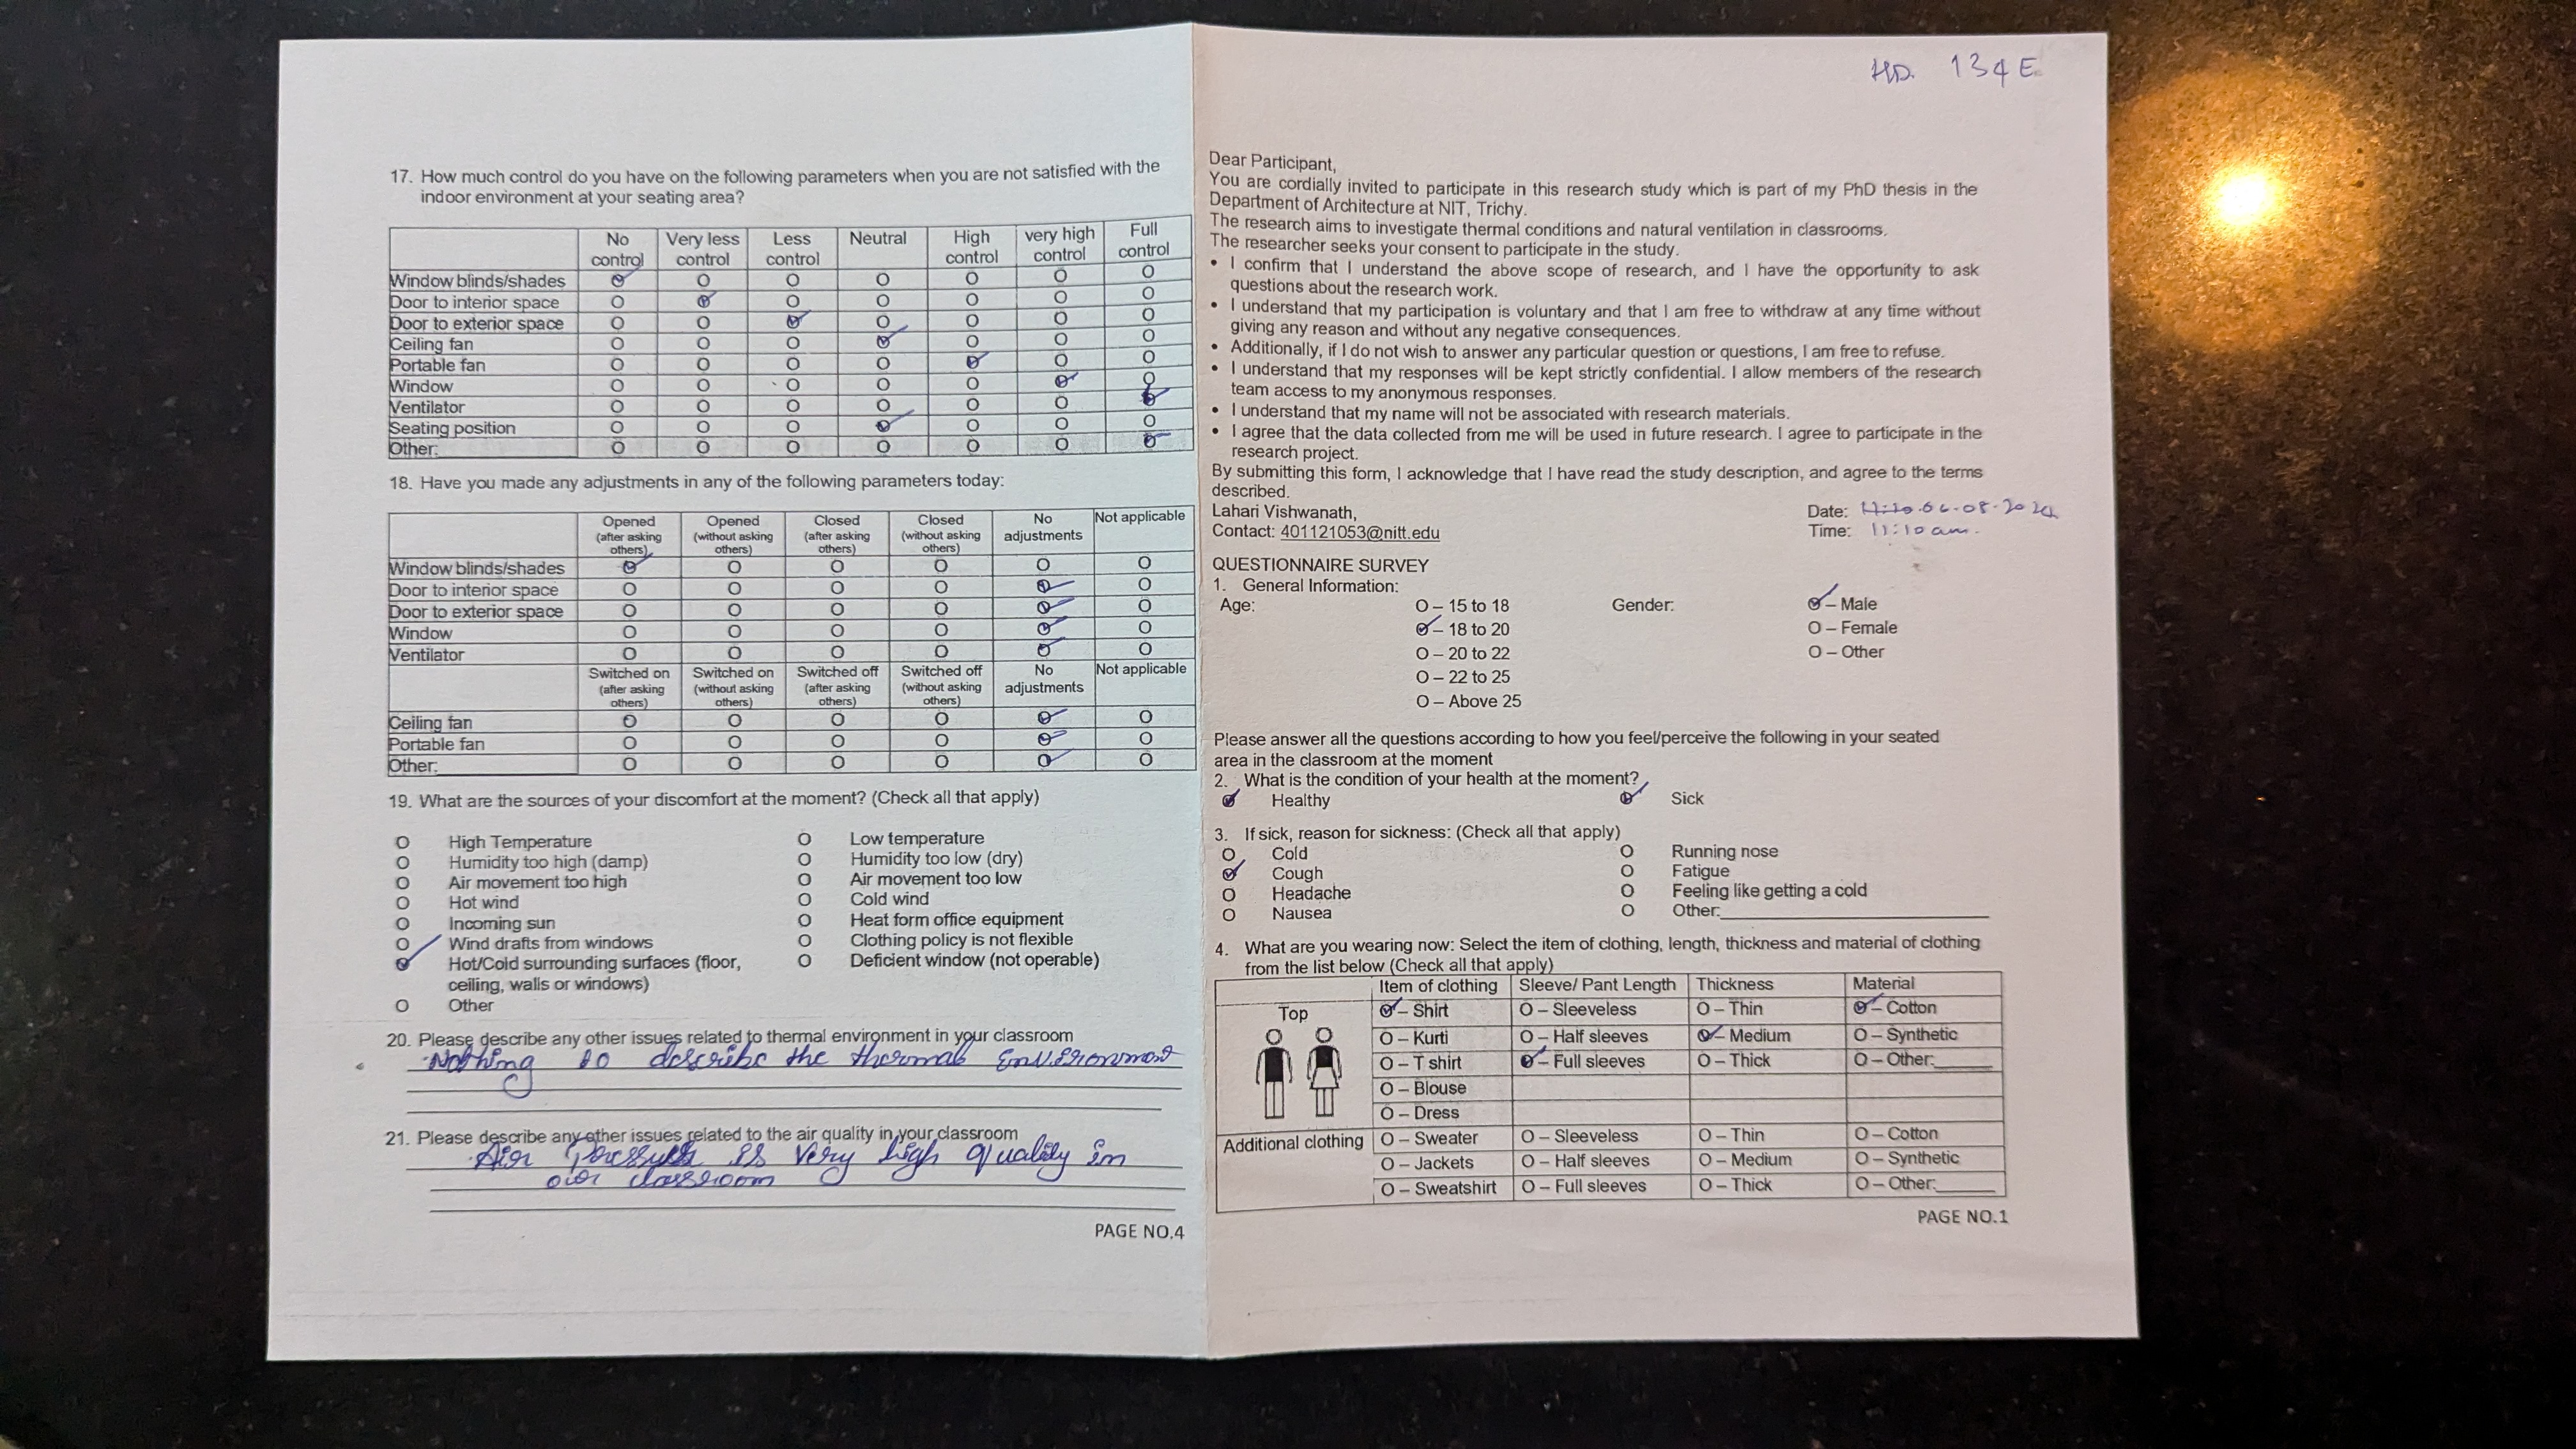 17. How much control do you have on the following parameters when you are not satisfied with the
indoor environment at your seating area?
No control Very less control Less control Neutral High control very high control Full control
Window blinds/shades O O O O O O O
Door to interior space O O O O O O O
Door to exterior space O O O O O O O
Ceiling fan O O O O O O O
Portable fan O O O O O O O
Window O O O O O O O
Ventilator O O O O O O O
Seating position O O O O O O O
Other: O O O O O O O
18. Have you made any adjustments in any of the following parameters today:
Opened (after asking others) Opened (without asking others) Closed (after asking others) Closed (without asking others) No adjustments Not applicable
Window blinds/shades O O O O O O
Door to interior space O O O O O O
Door to exterior space O O O O O O
Window O O O O O O
Ventilator O O O O O O
Switched on (after asking others) Switched on (without asking others) Switched off (after asking others) Switched off (without asking others) No adjustments Not applicable
Ceiling fan O O O O O O
Portable fan O O O O O O
Other: O O O O O O
19. What are the sources of your discomfort at the moment? (Check all that apply)
O High Temperature O Low temperature
O Humidity too high (damp) O Humidity too low (dry)
O Air movement too high O Air movement too low
O Hot wind O Cold wind
O Incoming sun O Heat form office equipment
O Wind drafts from windows O Clothing policy is not flexible
O Hot/Cold surrounding surfaces (floor, O Deficient window (not operable)
ceiling, walls or windows)
O Other
20. Please describe any other issues related to thermal environment in your classroom
Nothing to describe the thermal Environment
21. Please describe any other issues related to the air quality in your classroom
Air is very high quality in
our classroom
PAGE NO.4
HD. 134 E
Dear Participant,
You are cordially invited to participate in this research study which is part of my PhD thesis in the
Department of Architecture at NIT, Trichy.
The research aims to investigate thermal conditions and natural ventilation in classrooms.
The researcher seeks your consent to participate in the study.
• I confirm that I understand the above scope of research, and I have the opportunity to ask
questions about the research work.
• I understand that my participation is voluntary and that I am free to withdraw at any time without
giving any reason and without any negative consequences.
• Additionally, if I do not wish to answer any particular question or questions, I am free to refuse.
• I understand that my responses will be kept strictly confidential. I allow members of the research
team access to my anonymous responses.
• I understand that my name will not be associated with research materials.
• I agree that the data collected from me will be used in future research. I agree to participate in the
research project.
By submitting this form, I acknowledge that I have read the study description, and agree to the terms
described.
Lahari Vishwanath, Date: 06-08-2024
Contact: 401121053@nitt.edu Time: 11:10 am.
QUESTIONNAIRE SURVEY
1. General Information:
Age: O – 15 to 18 Gender: O – Male
O – 18 to 20 O – Female
O – 20 to 22 O – Other
O – 22 to 25
O – Above 25
Please answer all the questions according to how you feel/perceive the following in your seated
area in the classroom at the moment
2. What is the condition of your health at the moment?
O Healthy O Sick
3. If sick, reason for sickness: (Check all that apply)
O Cold O Running nose
O Cough O Fatigue
O Headache O Feeling like getting a cold
O Nausea O Other:
4. What are you wearing now: Select the item of clothing, length, thickness and material of clothing
from the list below (Check all that apply)
Item of clothing Sleeve/ Pant Length Thickness Material
Top O – Shirt O – Sleeveless O – Thin O – Cotton
O – Kurti O – Half sleeves O – Medium O – Synthetic
O – T shirt O – Full sleeves O – Thick O – Other:
O – Blouse
O – Dress
Additional clothing O – Sweater O – Sleeveless O – Thin O – Cotton
O – Jackets O – Half sleeves O – Medium O – Synthetic
O – Sweatshirt O – Full sleeves O – Thick O – Other:
PAGE NO.1